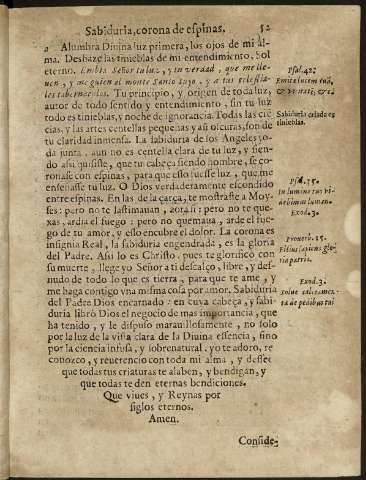 Sabiduria, corona de espinas. 52
a Alumbra Diuina luz primera, los ojos de mi al-
ma. Deshaze las tinieblas de mi entendimiento, Sol
eterno. Embia Señor tu luz, y tu verdad, que me lle-
uen, y me guien al monte Santo tuyo, y a tus celestia-
les tabernaculos. Tu principio, y origen de toda luz,
autor de todo sentido y entendimiento, sin tu luz
todo es tinieblas, y noche de ignorancia. Todas las cie-
cias, y las artes centellas pequeñas y assi oscuras, son de
tu claridad inmensa. La sabiduria de los Angeles to-
da junta, aun no es centella clara de tu luz, y sien-
do assi quisiste, que tu cabeça siendo hombre, se co-
ronasse con espinas, para que esso fuesse luz, que me
enseñasse tu luz. O Dios verdaderamente escondido
entre espinas. En las de la çarça, te mostraste a Moy-
ses: pero no te lastimauan, aora si: pero no te que-
xas, ardia el fuego: pero no quemaua, arde el fue-
go de tu amor, y esso encubre el dolor. La corona es
insignia Real, la sabiduria engendrada, es la gloria
del Padre. Assi lo es Christo, pues te glorificò con
su muerte, llegue yo Señor a ti descalço, libre, y des-
nudo de todo lo que es tierra, para que te ame, y
me haga contigo vna misma cosa por amor. Sabiduria
del Padre Dios encarnado: en cuya cabeça, y sabi-
duria librò Dios el negocio de mas importancia, que
ha tenido, y le dispuso marauillosamente, no solo
por la luz de la vista clara de la Diuina essencia, sino
por la ciencia infusa, y sobrenatural, yo te adoro, re
conozco, y reuerencio con toda mi alma, y desseo
que todas tus criaturas te alaben, y bendigan, y
que todas te den eternas bendiciones.
Que viues, y Reynas por
siglos eternos.
Amen.
Conside-
Psal. 42.
Emite lucem tuã,
Sabiduria celada es
tinieblas.
Psal. 35.
In lumine tuo vi-
debimus lumen.
Exod. 3.
Prouerb. 15.
Filius sapiens glo-
ria patris.
Exod. 3.
solue calceamen-
ta de pedibus tuis